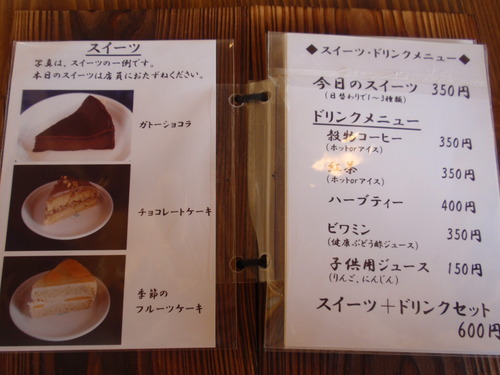 スイーツ
写真は、スイーツの一例です。
本日のスイーツは店員におたずねください。
ガトーショコラ
チョコレートケーキ
季節の
フルーツケーキ
◆スイーツ・ドリンクメニュー◆
今日のスイーツ 350円
(日替わりで1~3種類)
ドリンクメニュー
穀物コーヒー 350円
(ホットorアイス)
紅茶 350円
(ホットorアイス)
ハーブティー 400円
ビワミン 350円
(健康ぶどう酢ジュース)
子供用ジュース 150円
(りんご、にんじん)
スイーツ+ドリンクセット
600円